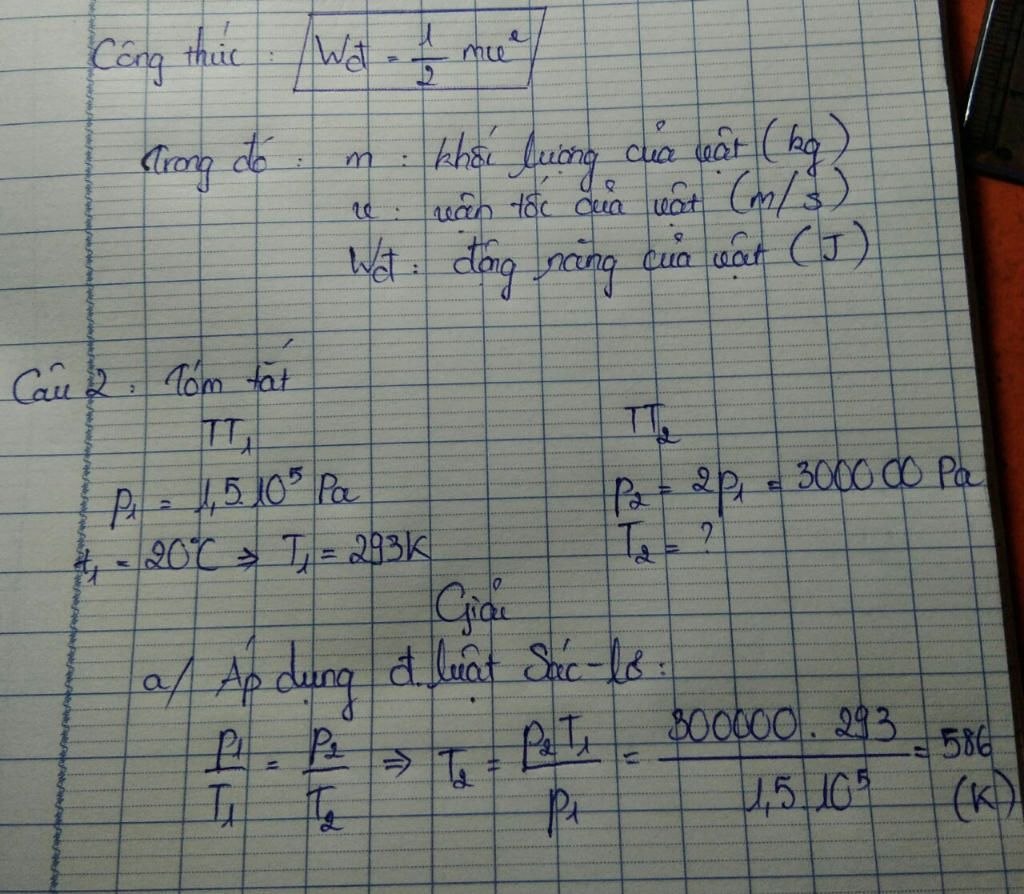 Công thức : Wđ = 1/2 mv²
Trong đó : m : khối lượng của vật (kg)
v : vận tốc của vật (m/s)
Wđ : động năng của vật (J)
Câu 2 : Tóm tắt
TT₁ TT₂
p₁ = 1,5.10⁵ Pa p₂ = 2p₁ = 300000 Pa
t₁ = 20°C ⇒ T₁ = 293K T₂ = ?
Giải
a/ Áp dụng đ.luật Sác-lơ :
p₁/T₁ = p₂/T₂ ⇒ T₂ = p₂T₁/p₁ = 300000 . 293/1,5.10⁵ = 586
(K)